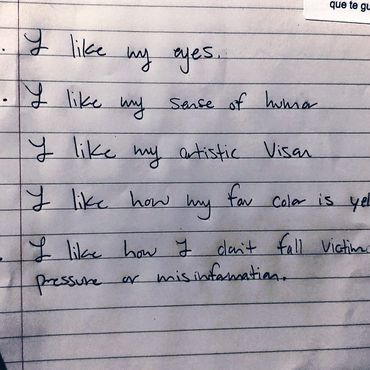 que te gu
I like my eyes.
I like my sense of humor
I like my artistic Vison
I like how my fav color is yel
I like how I don't fall victim
pressure or misinformation.